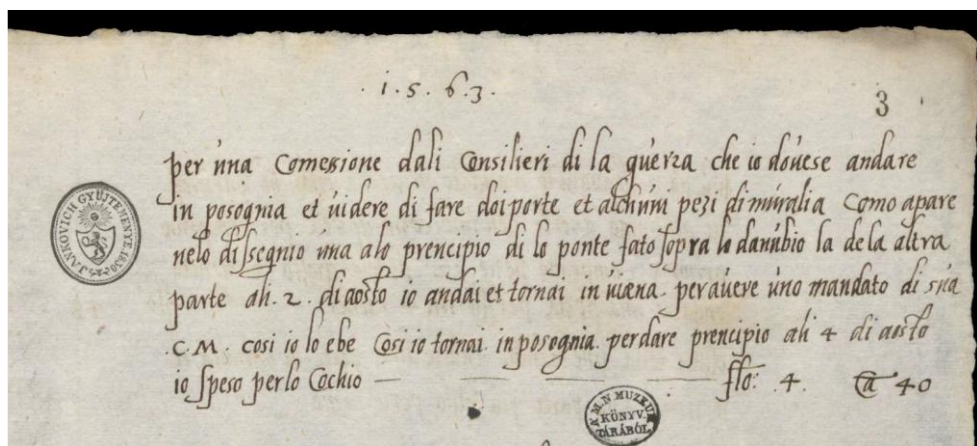 . 1 . 5 . 6 . 3 .
3
per una Comessione dali Consilieri di la guerra che io douese andare
in posognia et uidere di fare doi porte et alchuni pezi di muralia Como apare
nelo dissegnio una alo prencipio di lo ponte fato sopra lo danubio la de la altra
parte ali . 2 . di aosto io andai et tornai in uiena . per auere uno mandato di sua
. C . M . cosi io lo ebe Cosi io tornai . in posognia . per dare prencipio ali 4 di aosto
io speso per lo Cochio — — — — — flo: 4 . Ca 40
JANKOVICH GYŰJTEMÉNYE 1830
A M. N. MUZEUM
KÖNYV-
TÁRÁBÓL